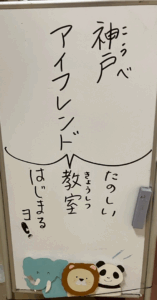 神戸
こうべ
アイフレンド
教室
きょうしつ
たのしい
はじまる
ヨ!!